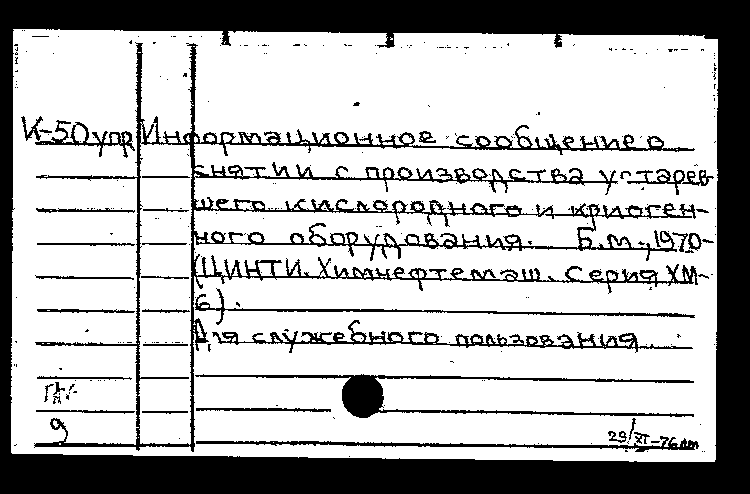 И-50упр Информационное сообщение о
снятии с производства устарев
шего кислородного и криоген-
ного оборудования. Б.м., 1970-
(ЦИНТИ. Химнефтемаш. Серия ХМ-
6).
Для служебного пользования.
9
29/XI-76